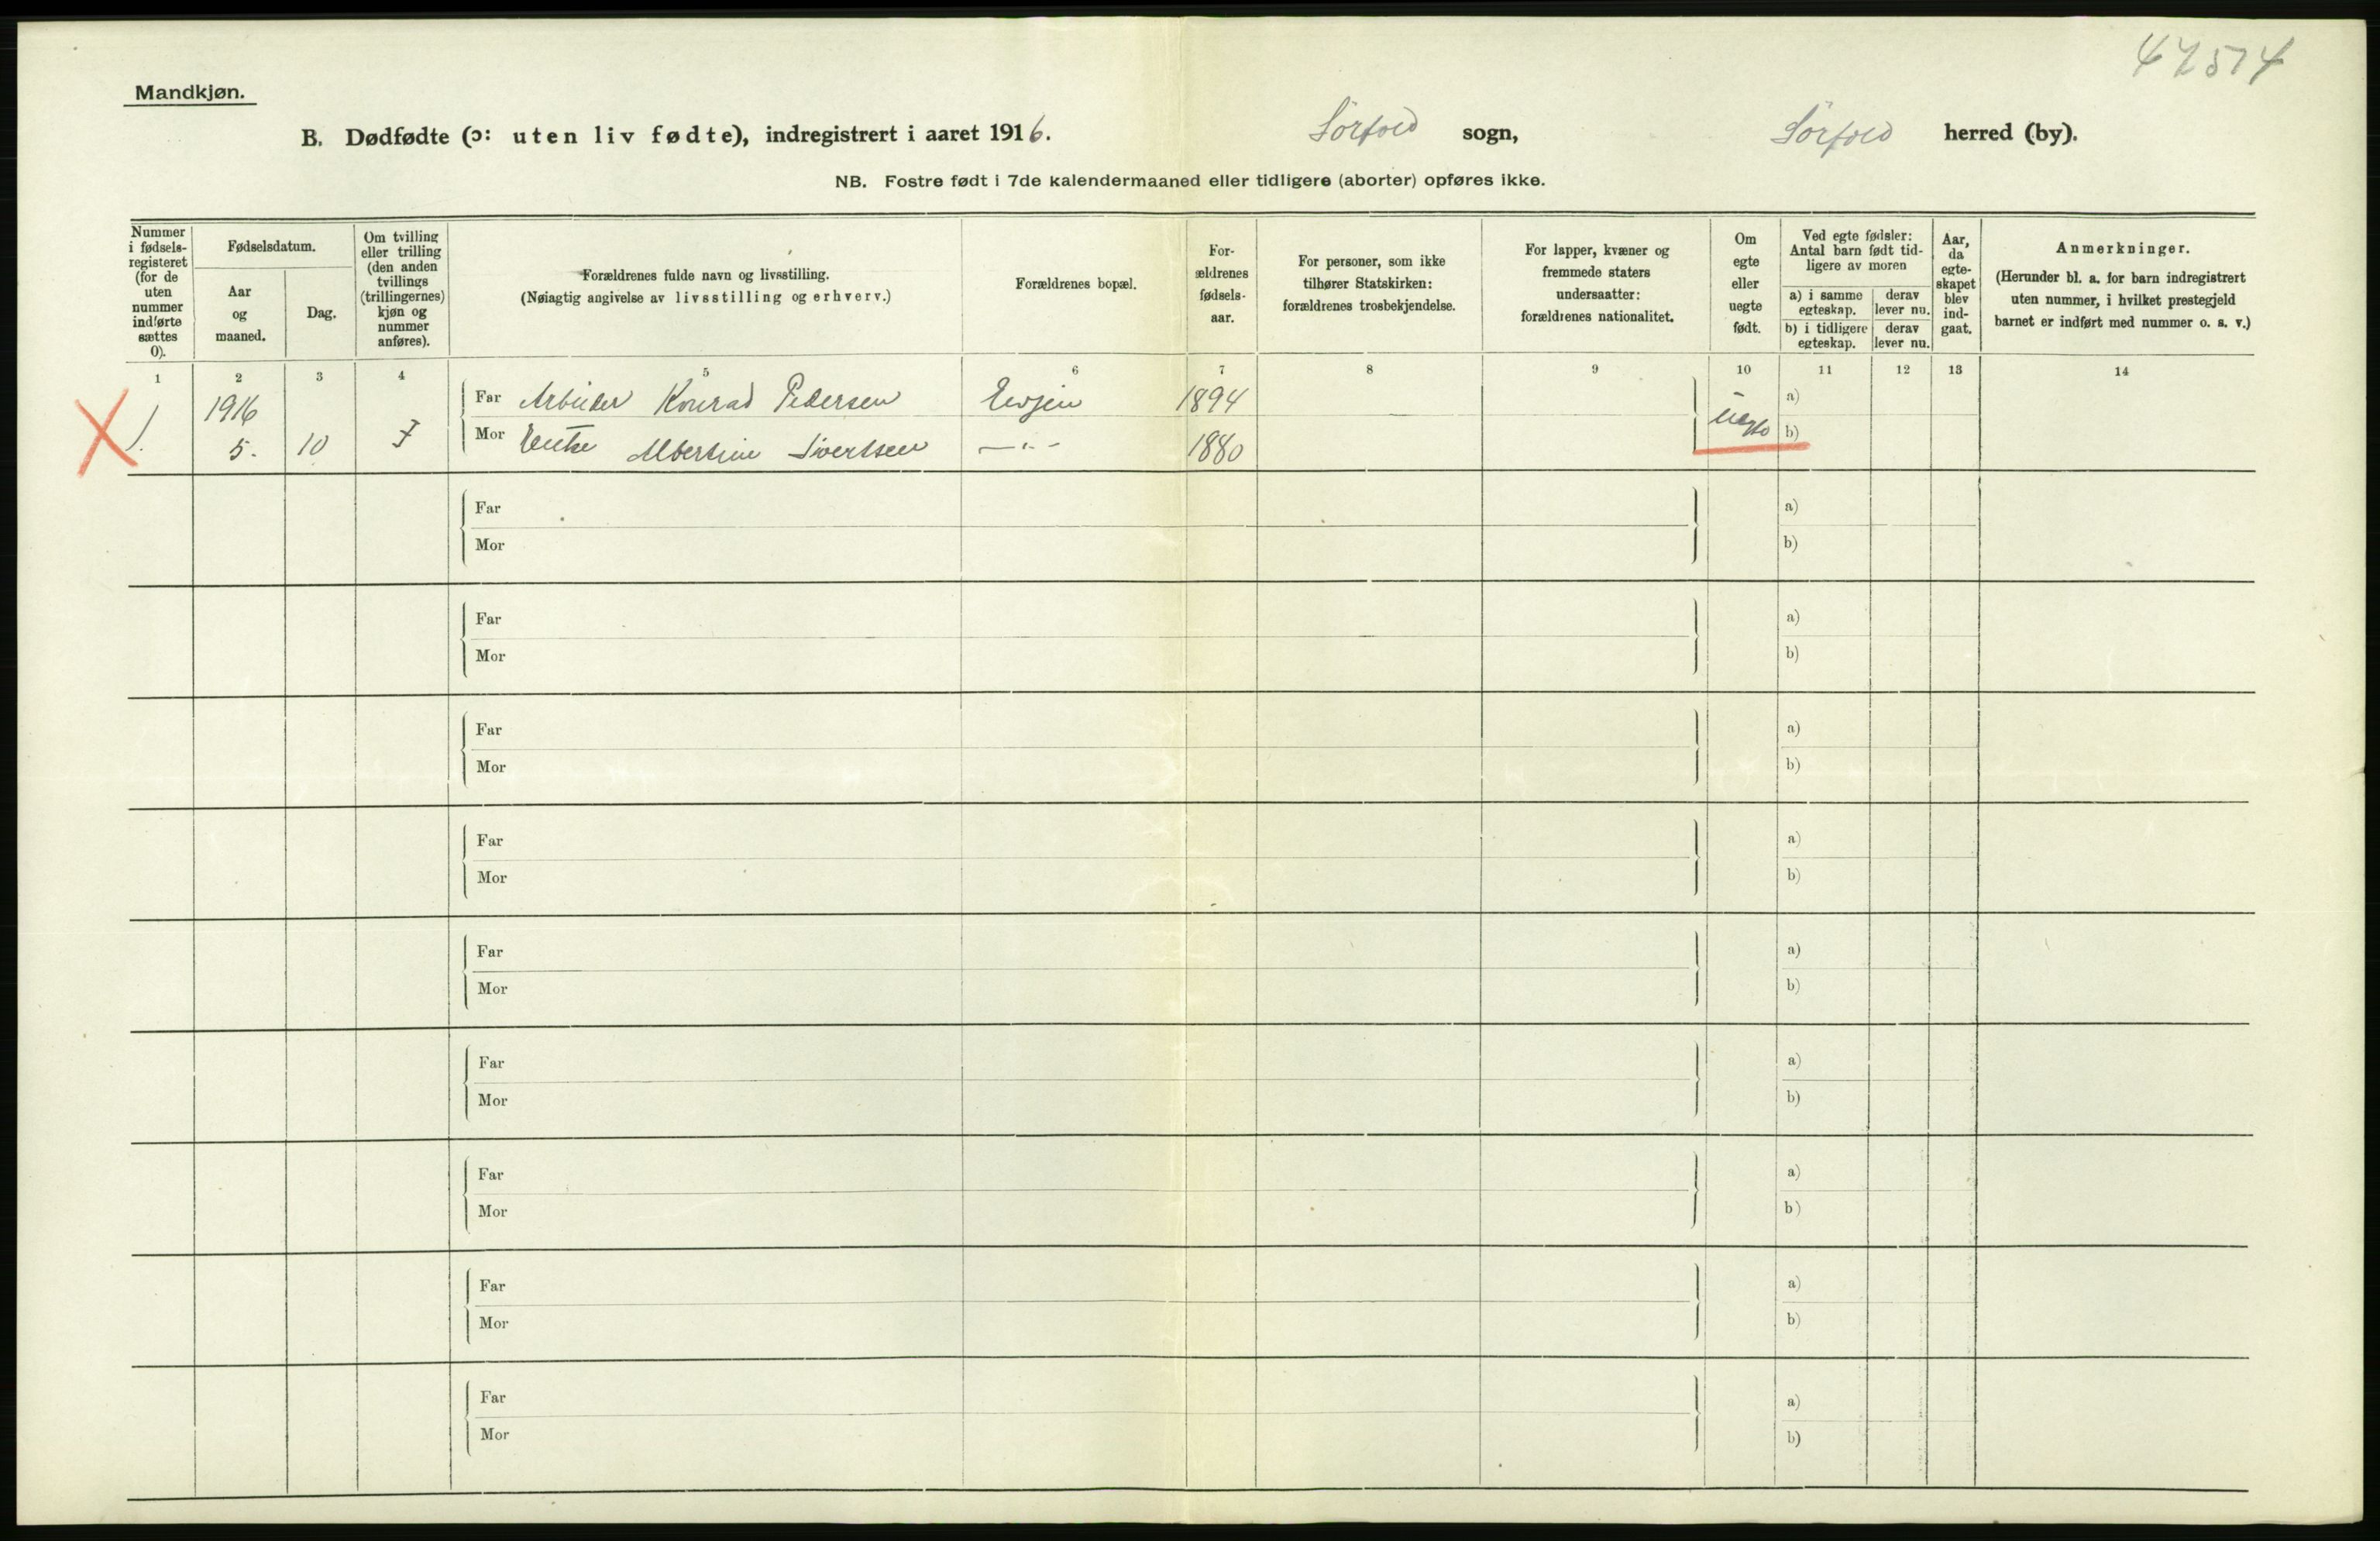 47574
Mandkjøn.
B. Dødfødte (ɔ: uten liv fødte), indregistrert i aaret 1916. Sørfold sogn, Sørfold herred (by).
NB. Fostre født i 7de kalendermaaned eller tidligere (aborter) opføres ikke.
Nummer
i fødsels-
registeret
(for de
uten
nummer
indførte
sættes
0).
Fødselsdatum.
Aar
og
maaned.
Dag.
Om tvilling
eller trilling
(den anden
tvillings
(trillingernes)
kjøn og
nummer
anføres).
Forældrenes fulde navn og livsstilling.
(Nøiagtig angivelse av livsstilling og erhverv.)
Forældrenes bopæl.
For-
ældrenes
fødsels-
aar.
For personer, som ikke
tilhører Statskirken:
forældrenes trosbekjendelse.
For lapper, kvæner og
fremmede staters
undersaatter:
forældrenes nationalitet.
Om
egte
eller
uegte
født.
Ved egte fødsler:
Antal barn født tid-
ligere av moren
a) i samme
egteskap.
derav
lever nu.
b) i tidligere
egteskap.
derav
lever nu.
Aar,
da
egte-
skapet
blev
ind-
gaat.
Anmerkninger.
(Herunder bl. a. for barn indregistrert
uten nummer, i hvilket prestegjeld
barnet er indført med nummer o. s. v.)
1 2 3 4 5 6 7 8 9 10 11 12 13 14
1916 Far Arbeider Konrad Pedersen Evjen 1894 uegte a)
1. 5. 10 Mor Enke Albertine Sivertsen —"— 1880 b)
Far a)
Mor b)
Far a)
Mor b)
Far a)
Mor b)
Far a)
Mor b)
Far a)
Mor b)
Far a)
Mor b)
Far a)
Mor b)
Far a)
Mor b)
Far a)
Mor b)